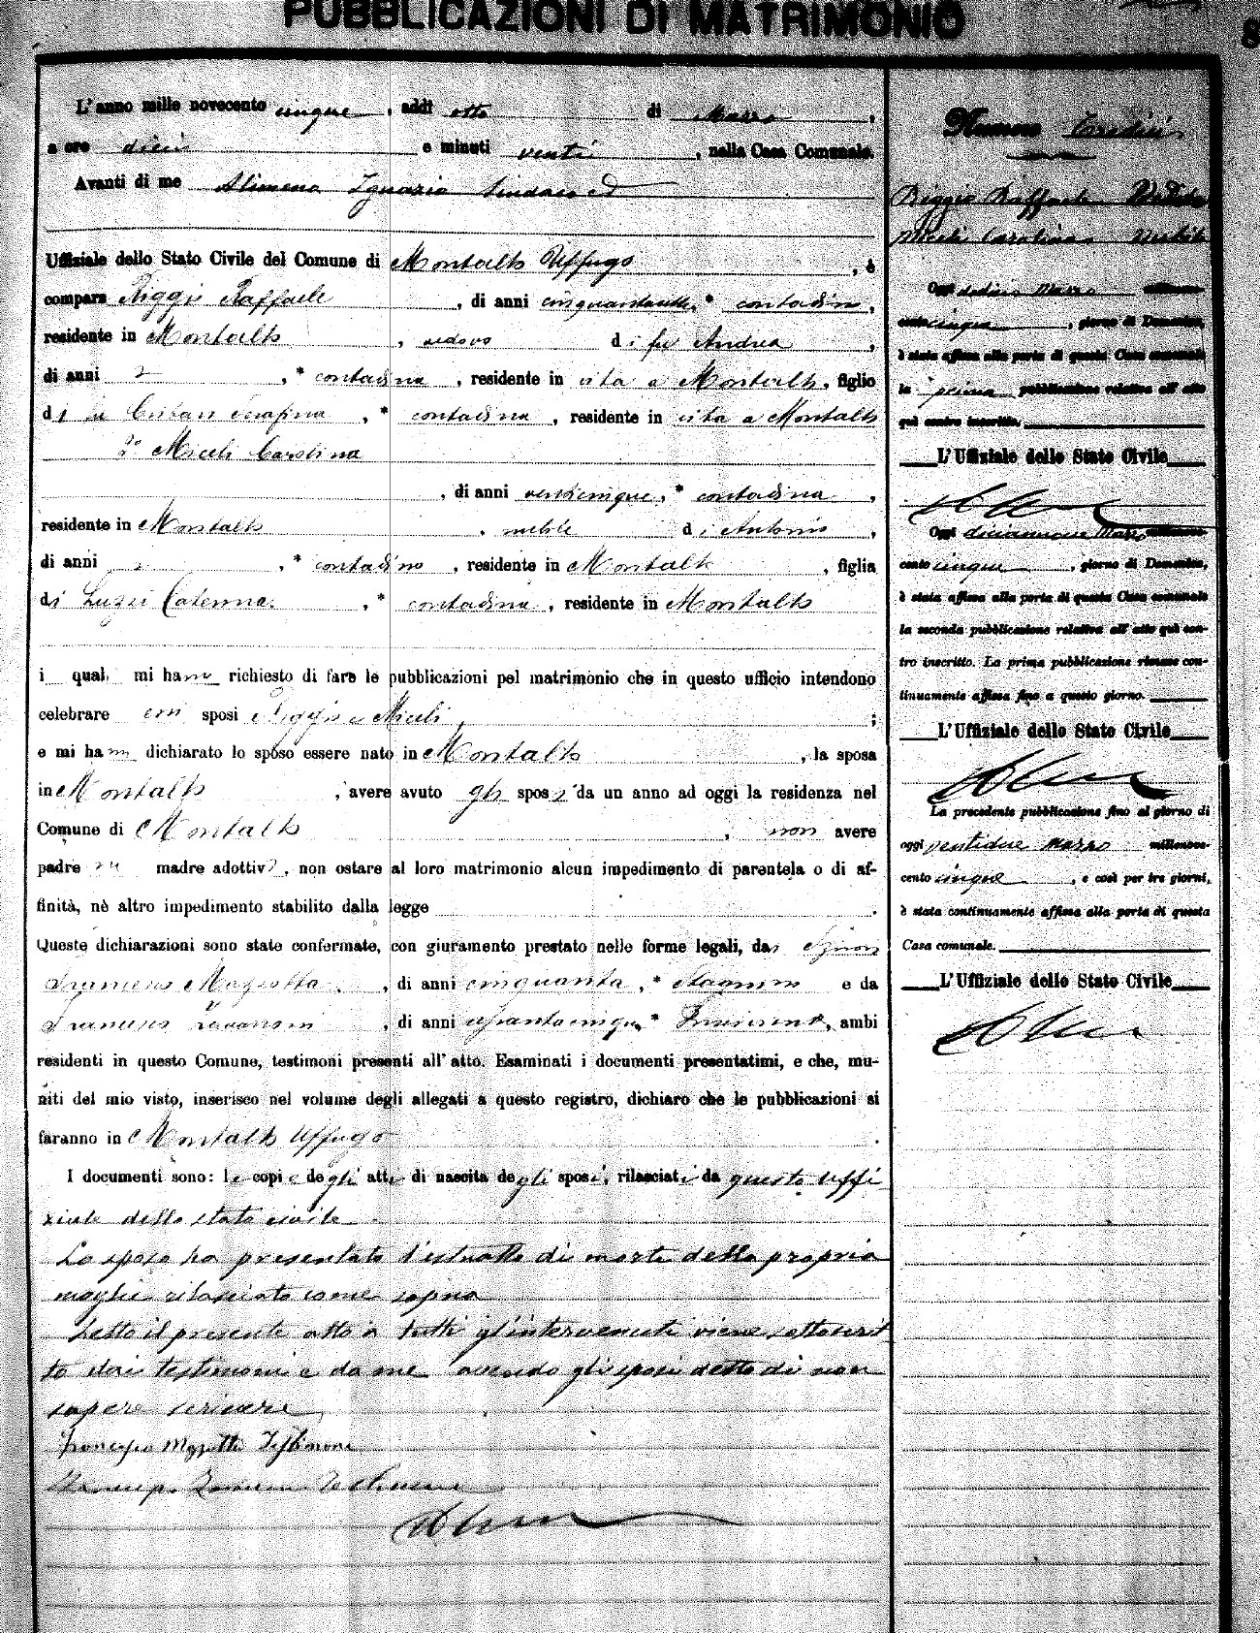 PUBBLICAZIONI DI MATRIMONIO
L'anno mille novecento cinque, addì otto di Marzo,
a ore dieci e minuti venti, nella Casa Comunale.
Avanti di me Alimena Ignazio Sindaco ed
Uffiziale dello Stato Civile del Comune di Montalto Uffugo, è
compars Riggio Raffaele, di anni * contadino,
residente in Montalto, vedovo di fu Andrea,
di anni , * contadino, residente in vita a Montalto, figlio
di Serafina, * contadina, residente in vita a Montalto
2º Miceli Carolina
, di anni venticinque, * contadina,
residente in Montalto, nubile di Antonio,
di anni , * contadino, residente in Montalto, figlia
di Luzzi Caterina, * contadina, residente in Montalto
i qual mi hann richiesto di fare le pubblicazioni pel matrimonio che in questo ufficio intendono
celebrare essi sposi Riggio e Miceli;
e mi hann dichiarato lo sposo essere nato in Montalto, la sposa
in Montalto, avere avuto gli sposi da un anno ad oggi la residenza nel
Comune di Montalto, non avere
padre madre adottivi, non ostare al loro matrimonio alcun impedimento di parentela o di af-
finità, nè altro impedimento stabilito dalla legge
Queste dichiarazioni sono state confermate, con giuramento prestato nelle forme legali, dai Signori
Francesco, di anni cinquanta, * Stagnino e da
Francesco, di anni, * ambi
residenti in questo Comune, testimoni presenti all'atto. Esaminati i documenti presentatimi, e che, mu-
niti del mio visto, inserisco nel volume degli allegati a questo registro, dichiaro che le pubblicazioni si
faranno in Montalto Uffugo.
I documenti sono: le copie degli atti di nascita degli sposi, rilasciati da questo Uffi
ziale dello stato civile.
Lo sposo ha presentato l'estratto di morte della propria
moglie rilasciato come sopra
Letto il presente atto a tutti gl'intervenuti viene sottoscrit
to dai testimoni e da me avendo gli sposi detto di non
sapere scrivere
Testimone
Numero Tredici
Riggio Raffaele Vedovo
Miceli Carolina Nubile
Oggi dodici Marzo millenove-
cento cinque, giorno di Domenica,
è stata affissa alla porta di questa Casa comunale
la prima pubblicazione relativa all'atto
quì contro inscritto.
L'Uffiziale dello Stato Civile
Oggi diciannove Marzo millenove-
cento cinque, giorno di Domenica,
è stata affissa alla porta di questa Casa comunale
la seconda pubblicazione relativa all'atto quì con-
tro inscritto. La prima pubblicazione rimase con-
tinuamente affissa fino a questo giorno.
L'Uffiziale dello Stato Civile
La precedente pubblicazione fino al giorno di
oggi ventidue Marzo millenove-
cento cinque, e così per tre giorni,
è stata continuamente affissa alla porta di questa
Casa comunale.
L'Uffiziale dello Stato Civile